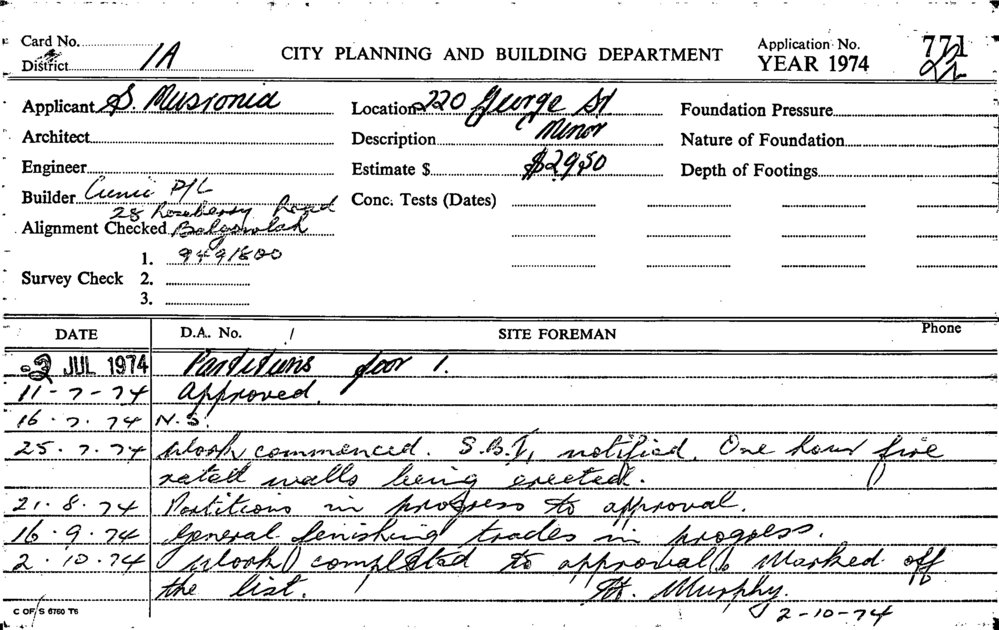 Card No.
District 1A
CITY PLANNING AND BUILDING DEPARTMENT
Application No. 771
YEAR 1974
Applicant S. Musronid
Location 220 George St
Foundation Pressure
Architect
Description Minor
Nature of Foundation
Engineer
Estimate $ $2950
Depth of Footings
Builder P/L
28 Roseberry Road
Conc. Tests (Dates)
Alignment Checked Balgowlah
1. 9491800
Survey Check 2.
3.
DATE D.A. No. / SITE FOREMAN Phone
2 JUL 1974 Partitions floor 1.
11-7-74 Approved.
16.7.74 N.S.
25.7.74 Work commenced. S.B.I. notified. One hour fire
rated walls being erected.
21.8.74 Partitions in progress to approval.
16.9.74 General finishing trades in progress.
2.10.74 Work completed to approval. Marked off
the list. Murphy.
2-10-74
C OF S 6760 T6